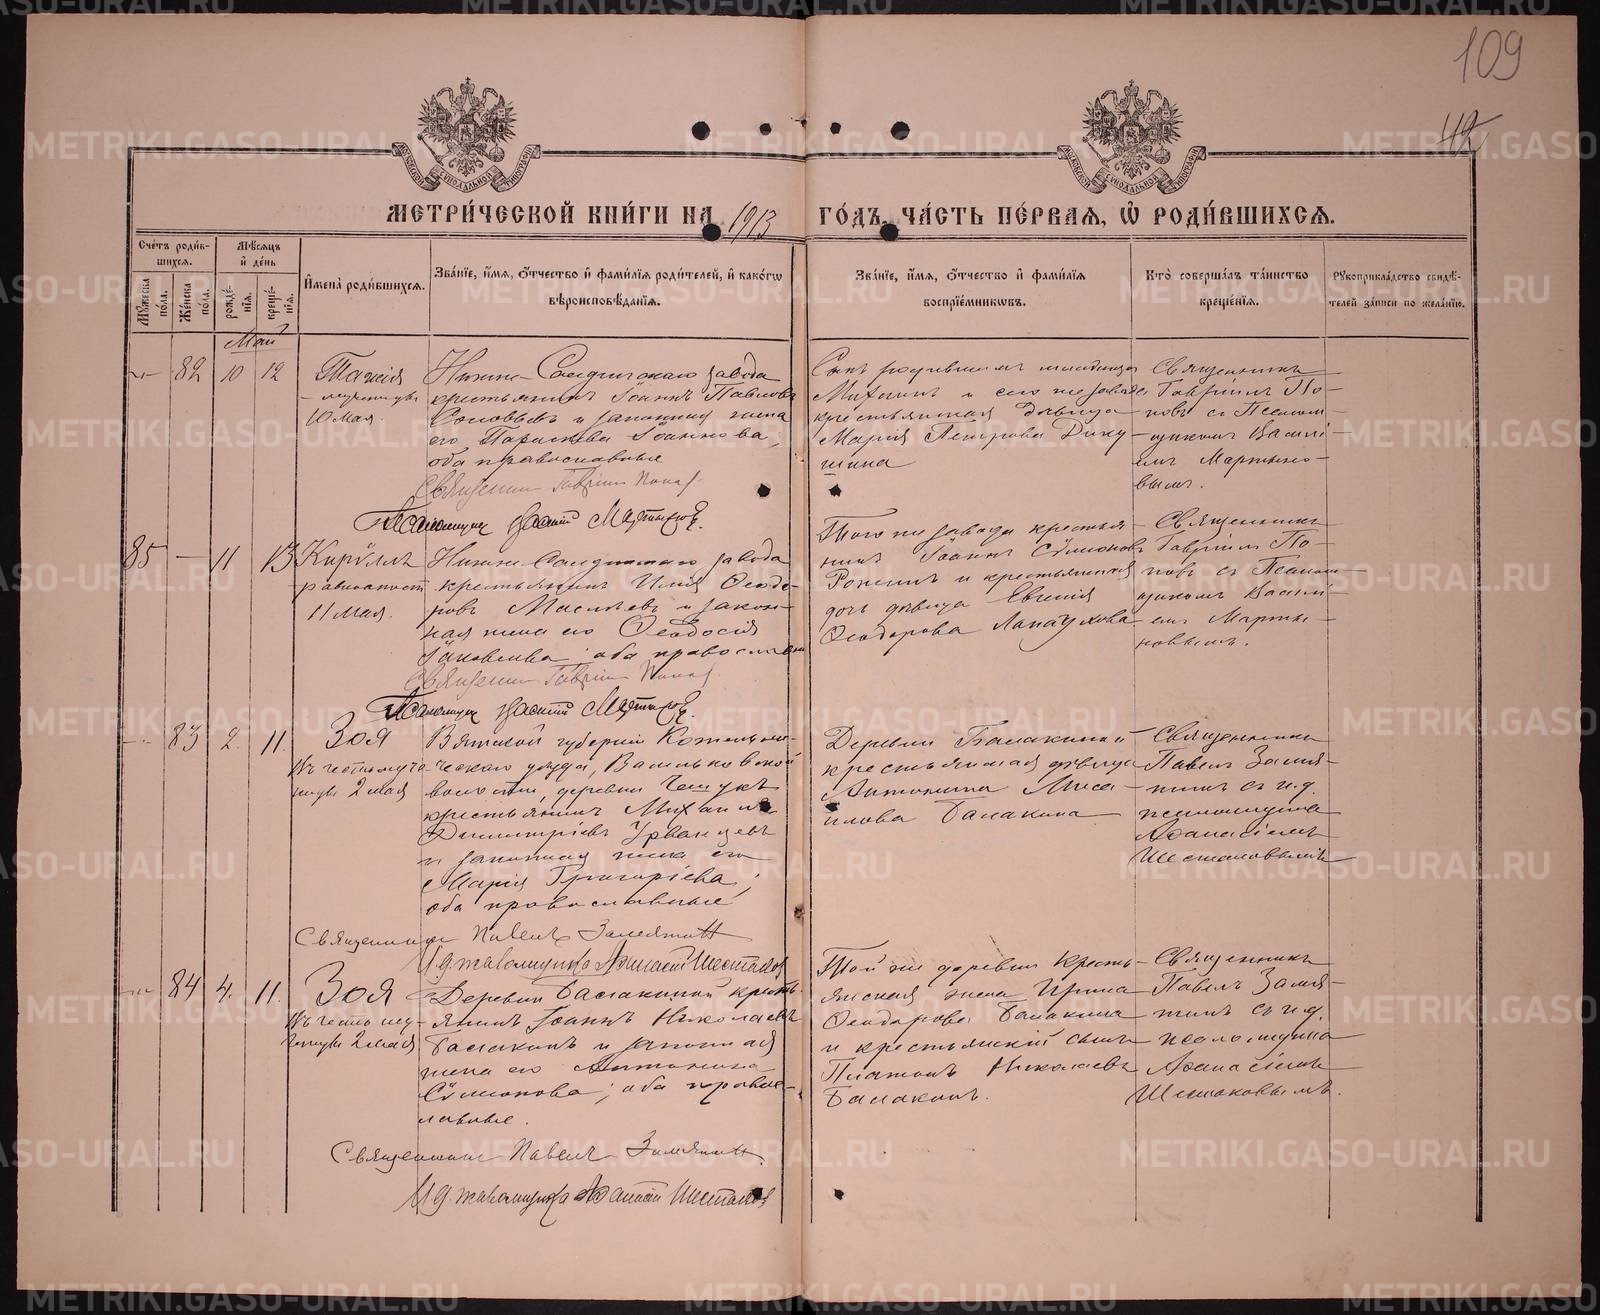 109
42
МЕТРИ́ЧЕСКОЙ КНИ́ГИ НА 1913 ГО́ДЪ, ЧА́СТЬ ПЕ́РВАЯ, Ѡ РОДИ́ВШИХСѦ.
Сче́тъ роди́в-
шихсѧ.
Мѣ́сѧцъ
и҆ де́нь
Мꙋ́жеска по́ла.
Же́нска по́ла.
рожде́-
нїѧ.
креще́-
нїѧ.
И҆мена̀ роди́вшихсѧ.
Зва́нїе, и҆́мѧ, ѻ҆́тчество и҆ фами́лїѧ роди́телей, и҆ како́гѡ
вѣроисповѣ́данїѧ.
Зва́нїе, и҆́мѧ, ѻ҆́тчество и҆ фами́лїѧ
воспрїе́мникѡвъ.
Кто̀ соверша́лъ та́инство
креще́нїѧ.
Рꙋкоприкла́дство свидѣ́-
телей за́писи по жела́нїю.
Май
82 10 12
Таисія
мученицы
10 мая.
Нижне-Салдинскаго завода
крестьянинъ Іоаннъ Павловъ
Соловьевъ и законная жена
его Параскева Іоаннова,
оба православные
Священникъ Гавріилъ Поповъ
Псаломщик Василій Мартынов.
Сынъ родившей младенца
Михаилъ и его же завода
крестьянская дѣвица
Марія Петрова Дику-
шина
Священникъ
Гавріилъ По-
повъ съ Псалом-
щикомъ Василі-
емъ Мартыно-
вымъ.
85 — 11 13
Кириллъ
равноапост
11 мая.
Нижне-Салдинскаго завода
крестьянинъ Илія Ѳеодо-
ровъ Масляевъ и закон-
ная жена его Ѳеодосія
Іаковлева; оба православн
Священник Гавріил Попов
Псаломщик Василій Мартынов.
Того же завода крестья-
нинъ Іоаннъ Сѵмеоновъ
и крестьянская
дочь дѣвица Евгенія
Ѳеодорова Лапаухова
Священникъ
Гавріилъ По-
повъ съ Псалом
щикомъ Васили
емъ Марты-
новымъ.
83 2 11.
Зоя
Въ честь муче-
ницы 2 мая
Вятской губерніи Котельни-
ческаго уѣзда, Васильковской
волости, деревни
крестьянинъ Михаилъ
Димитріевъ Урванцевъ
и законная жена его
Марія Григоріева,
оба православные
Священник Павелъ Замятин
И.д. псаломщика Аѳанасій Шестаков
Деревни Балакиной
крестьянская дѣвица
Антонина Миса-
илова Балакина
Священникъ
Павелъ Замя-
тинъ съ и.д.
псаломщика
Аѳанасіемъ
Шестаковымъ
84 4. 11.
Зоя
Въ честь му-
ченицы 2 мая
Деревни Балакиной кресть-
янинъ Іоаннъ Николаевъ
Балакинъ и законная
жена его Антонина
Сѵмеонова; оба правос-
лавные.
Священник Павелъ Замятин.
И.д. псаломщика Аѳанасій Шестаков
Той же деревни кресть-
янская жена Ирина
Ѳеодорова Балакина
и крестьянскій сынъ
Платонъ Николаевъ
Балакинъ.
Священникъ
Павелъ Замя-
тинъ съ и.д.
псаломщика
Аѳанасіемъ
Шестаковымъ.
METRIKI.GASO-URAL.RU